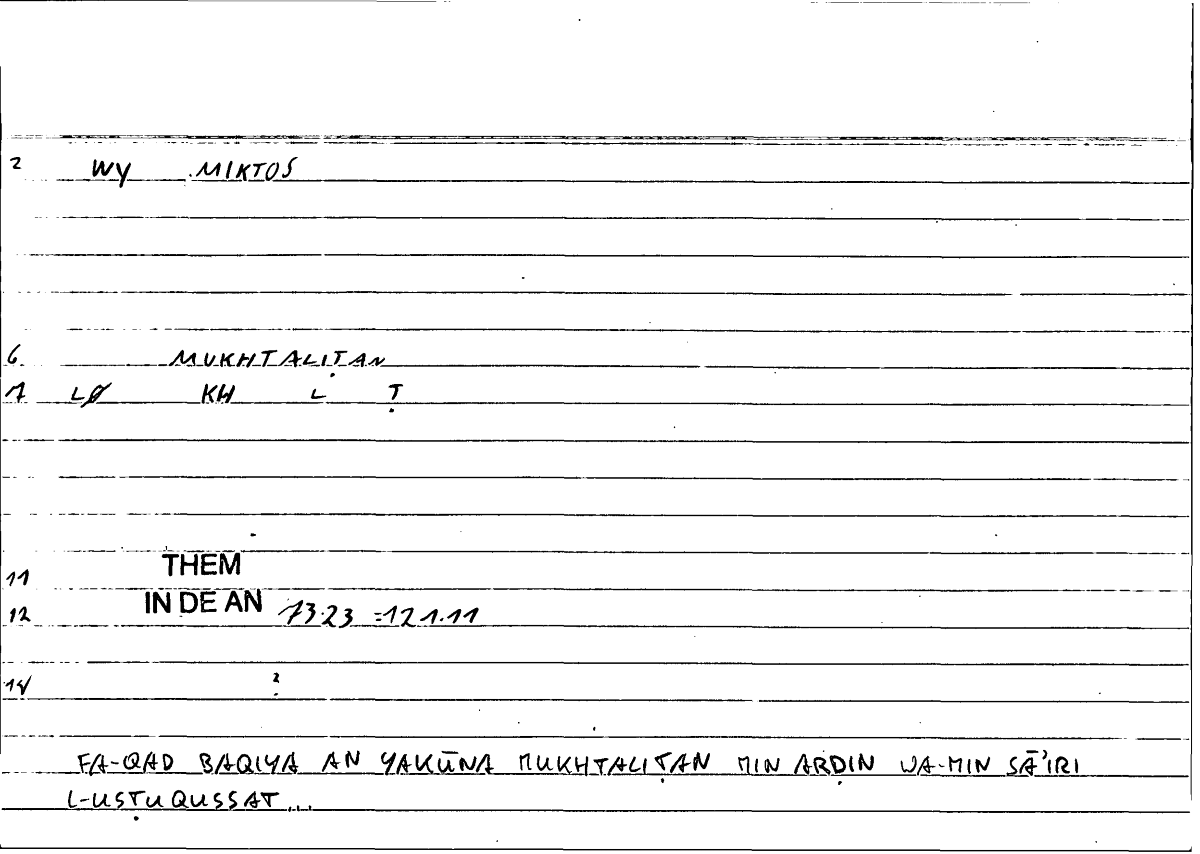 2 WY MIKTOS
6. MUKHTALIṬAN
7 LØ KH L Ṭ
11 THEM
12 IN DE AN 73.23 =12 1.11
14 2
FA-QAD BAQIYA AN YAKŪNA MUKHTALIṬAN MIN ARḌIN WA-MIN SĀ'IRI
L-USṬUQUSSAT...